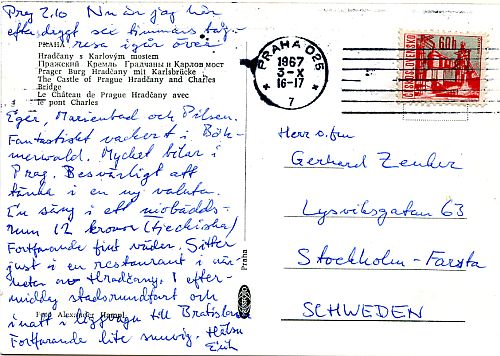 Prag 2.10 Nu är jag här
efter drygt sex timmars tåg-
resa igår över
PRAHA
Hradčany s Karlovým mostem
Пражский Кремль Градчаны и Карлов мост
Prager Burg Hradčany mit Karlsbrücke
The Castle of Prague Hradčany and Charles
Bridge
Le Château de Prague Hradčany avec
le pont Charles
Eger, Marienbad och Pilsen.
Fantastiskt vackert i Böh-
merwald. Mycket bilar i
Prag. Besvärligt att
tänka i en ny valuta.
En säng i ett niobädds-
rum 12 kronor (tjeckiska)
Fortfarande fint väder. Sitter
just i en restaurant i när-
heten av Hradčany. I efter-
middag stadsrundfart och
i natt i liggvagn till Bratislava
Foto Alexander Hampl
Fortfarande lite snuvig. Hälsn
Erik
Praha
PRAHA 025
1967
3-X
16-17
7
ČESKOSLOVENSKO
60h
Herr o. fru
Gerhard Zenker
Lysviksgatan 63
Stockholm-Farsta
SCHWEDEN